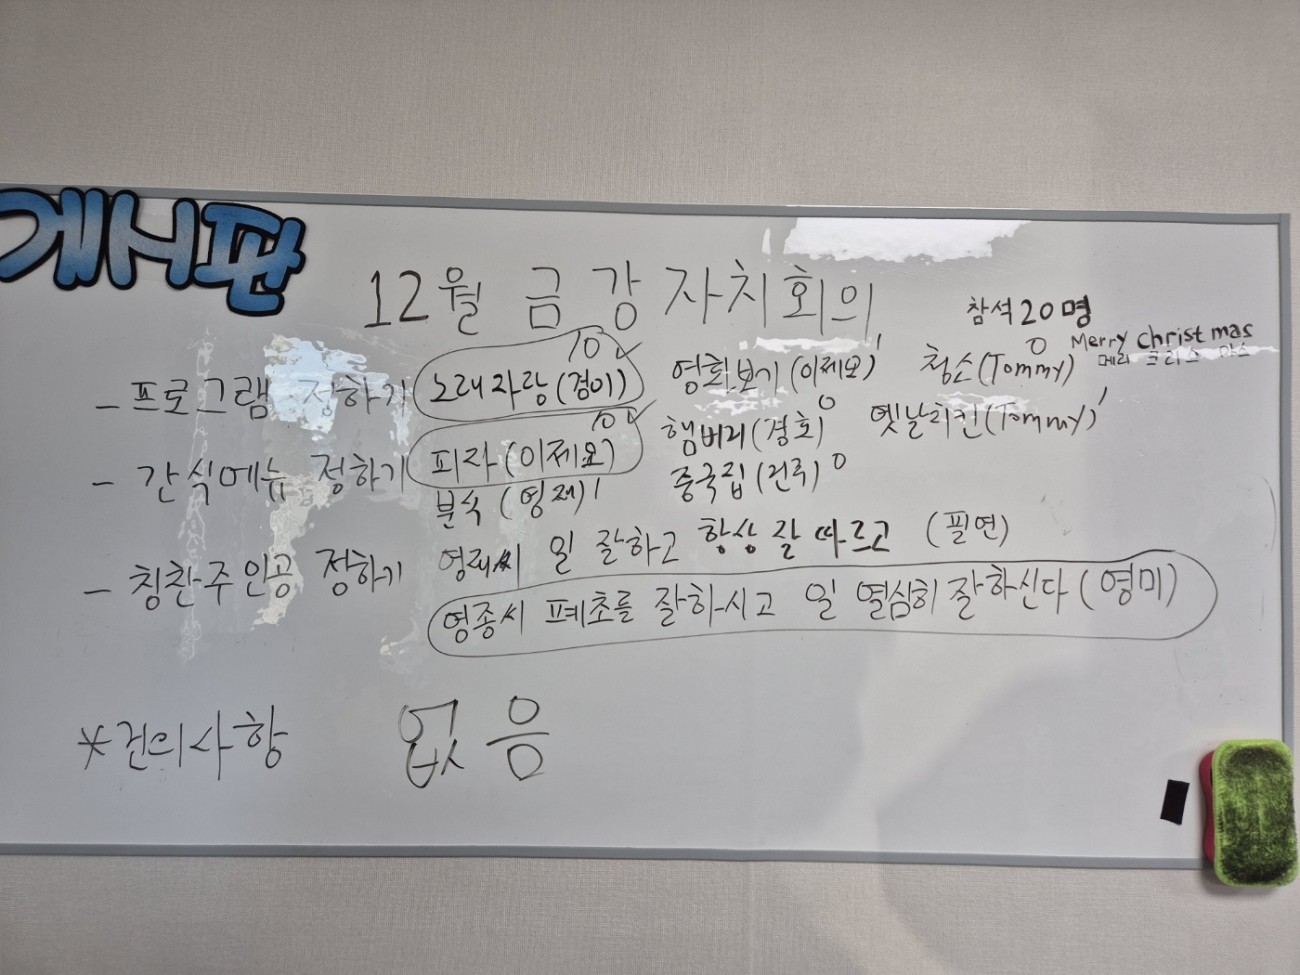 게시판
12월 금강 자치회의
참석 20명
Merry christmas
메리 크리스 마스
- 프로그램 정하기 노래자랑(경이) 10 ✓ 영화보기(이제요) 1 청소(Tommy) 0
- 간식메뉴 정하기 피자(이제요) 10 ✓ 햄버리(경호) 0 옛날치킨(Tommy) 1
분식(영제) 1 중국집(건루) 0
- 칭찬주인공 정하기 영재씨 일 잘하고 항상 잘 따르고 (필연)
영종씨 폐초를 잘하시고 일 열심히 잘하신다(영미)
*건의사항 없음